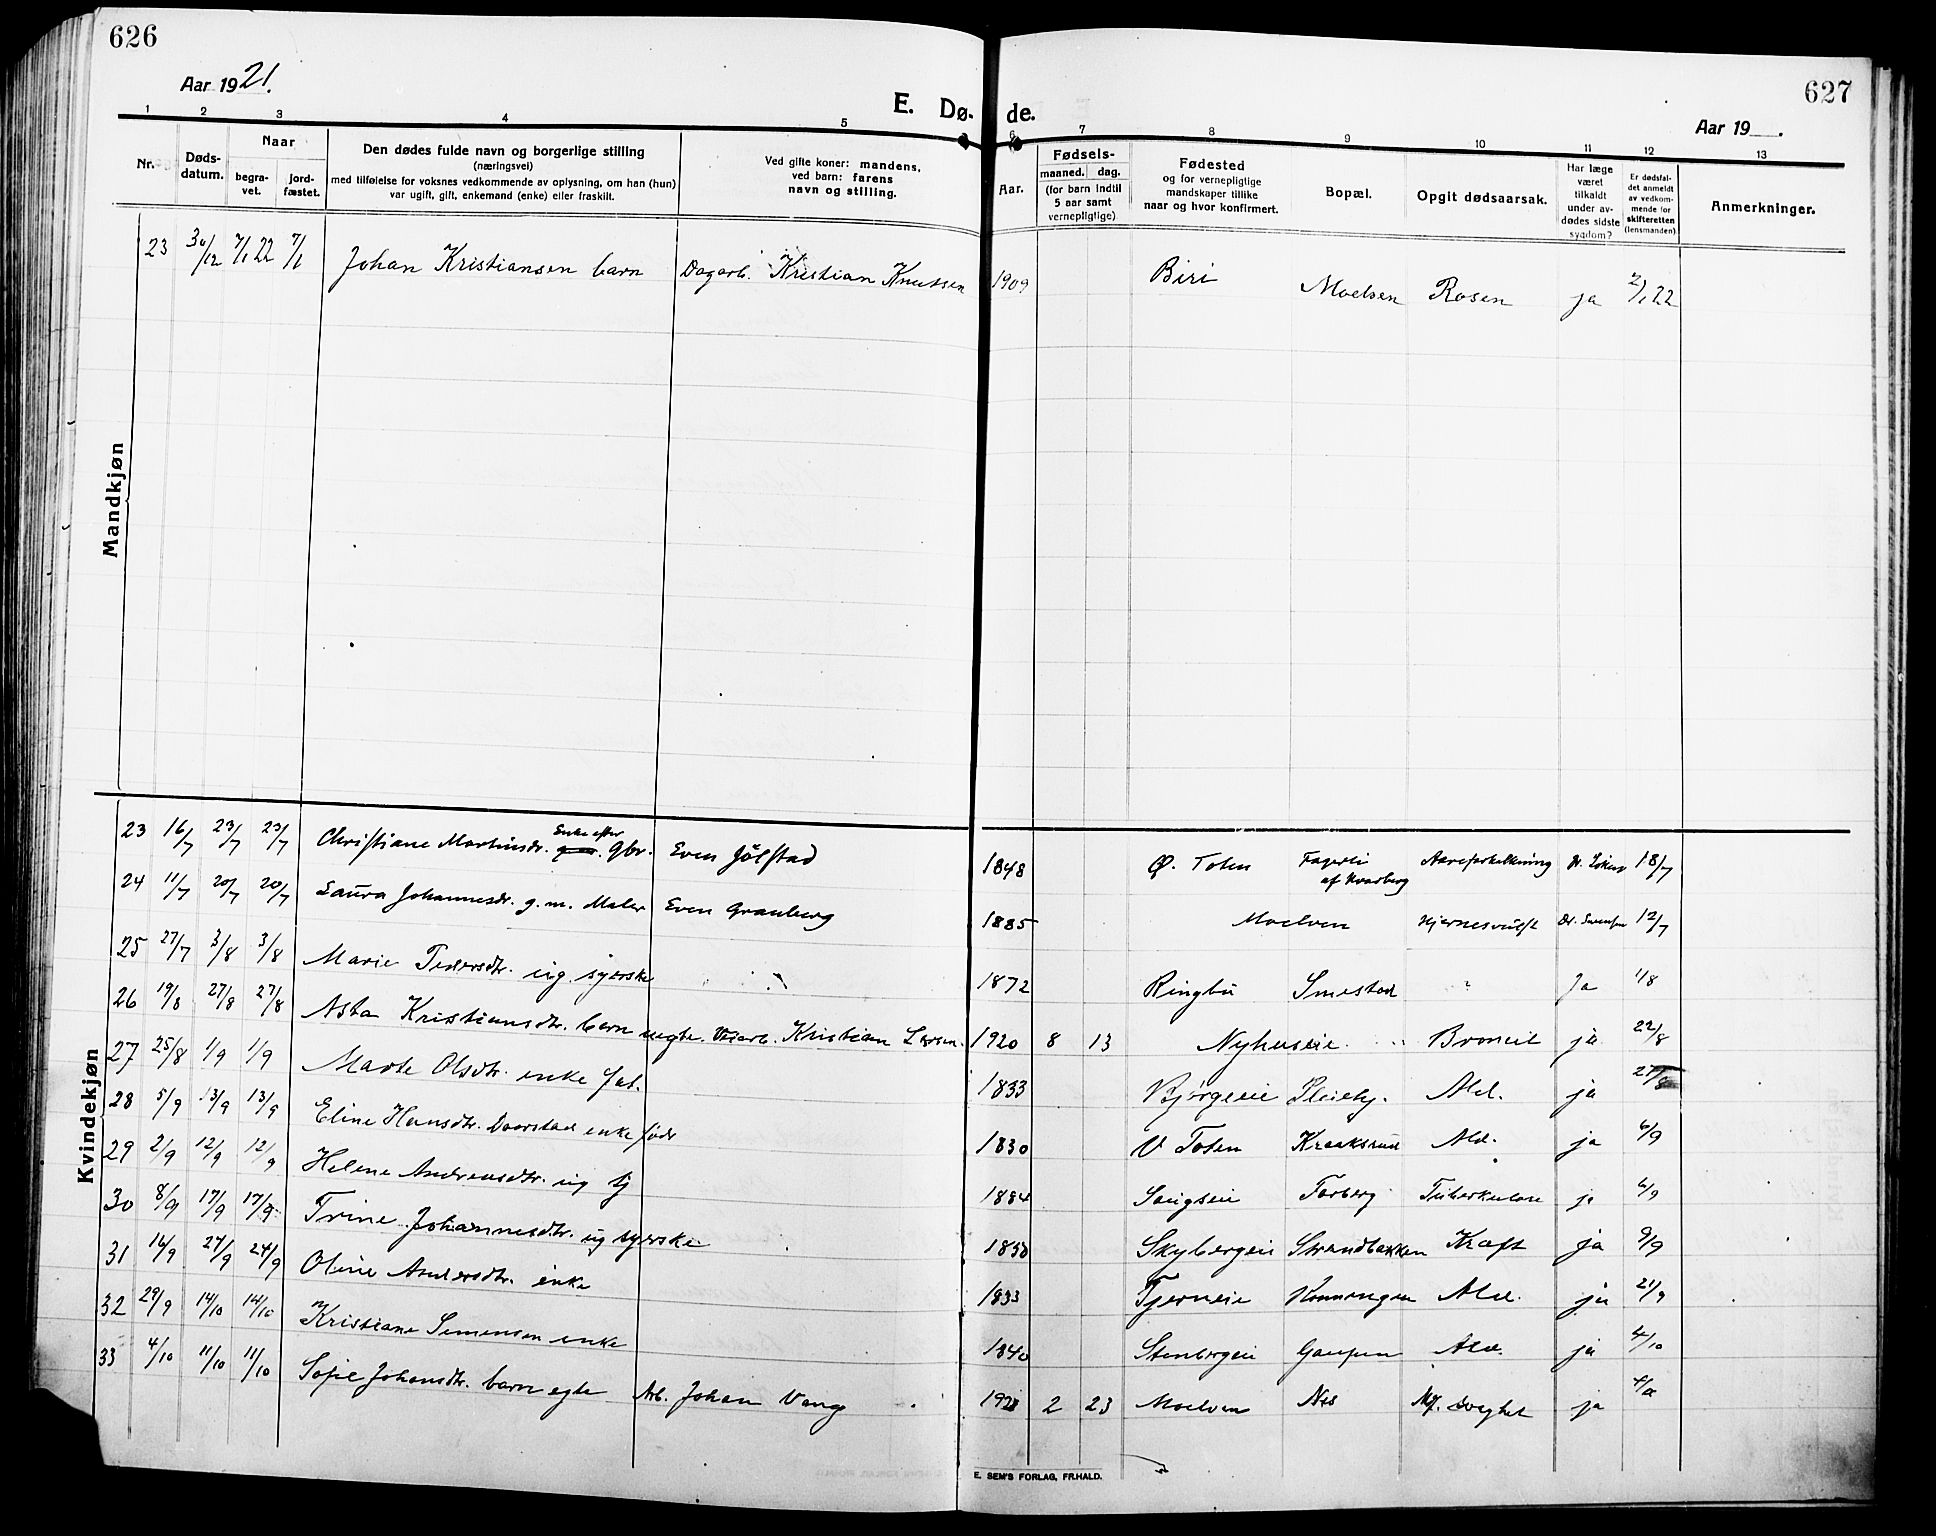 626
627
Aar 1921.
E. Dø- de.
Aar 19__.
1 2 3 4 5 6 7 8 9 10 11 12 13
Nr.
Døds-datum.
Naar
begra-vet.
jord-fæstet.
Den dødes fulde navn og borgerlige stilling
(næringsvei)
med tilføielse for voksnes vedkommende av oplysning, om han (hun)
var ugift, gift, enkemand (enke) eller fraskilt.
Ved gifte koner: mandens,
ved barn: farens
navn og stilling.
Aar.
Fødsels-
maaned. dag.
(for barn indtil
5 aar samt
vernepligtige)
Fødested
og for vernepligtige
mandskaper tillike
naar og hvor konfirmert.
Bopæl.
Opgit dødsaarsak.
Har læge
været
tilkaldt
under av-
dødes sidste
sygdom?
Er dødsfal-
det anmeldt
av vedkom-
mende for
skifteretten
(lensmanden)
Anmerkninger.
Mandkjøn
23 30/12 7/1 22 7/1 Johan Kristiansen barn Dagarb. Kristian Knutsen 1909 Biri Moelven Rosen ja 2/1 22
Kvindekjøn
23 16/7 23/7 23/7 Christiane Martinsdr. Enke efter gbr. Even Jølstad 1848 Ø. Toten Fagerli af Kvarberg Aareforkalkning 18/7
24 11/7 20/7 20/7 Laura Johannesdr. g. m. Maler Even Granberg 1885 Moelven Hjernesvulst Dr. 12/7
25 27/7 3/8 3/8 Marie Pedersdtr. ug. syerske 1872 Ringbu Smestad Ja 1/8
26 19/8 27/8 27/8 Asta Kristiansdtr. barn uegte. Veiarb. Kristian Larsen. 1920 8 13 Nyhuseie " Bronkit ja 22/8
27 25/8 1/9 1/9 Marte Olsdtr. enke fat. 1833 Bjørgeeie Pleiehj. Ald. ja 27/8
28 5/9 13/9 13/9 Eline Hansdtr. enke føder 1830 V Toten Kraaksrud Ald. ja 6/9
29 2/9 12/9 12/9 Helene Andreasdtr. ug tj 1884 Torberg Tuberkulose ja 6/9
30 8/9 17/9 17/9 Trine Johannesdtr. ug syerske Skybergeie Strandbakken Kræft ja 9/9
31 16/9 27/9 24/9 Oline Andersdtr. enke 1833 Tjerneie Ald. ja 21/9
32 29/9 14/10 14/10 Kristiane Simensen enke 1840 Stenbergeie Gaupen Ald. ja 4/10
33 4/10 11/10 11/10 Sofie Johansdtr. barn egte Arb. Johan Vang 2 23 Moelven Nes Mf. svaghet ja
E. SEM'S FORLAG, FR.HALD.